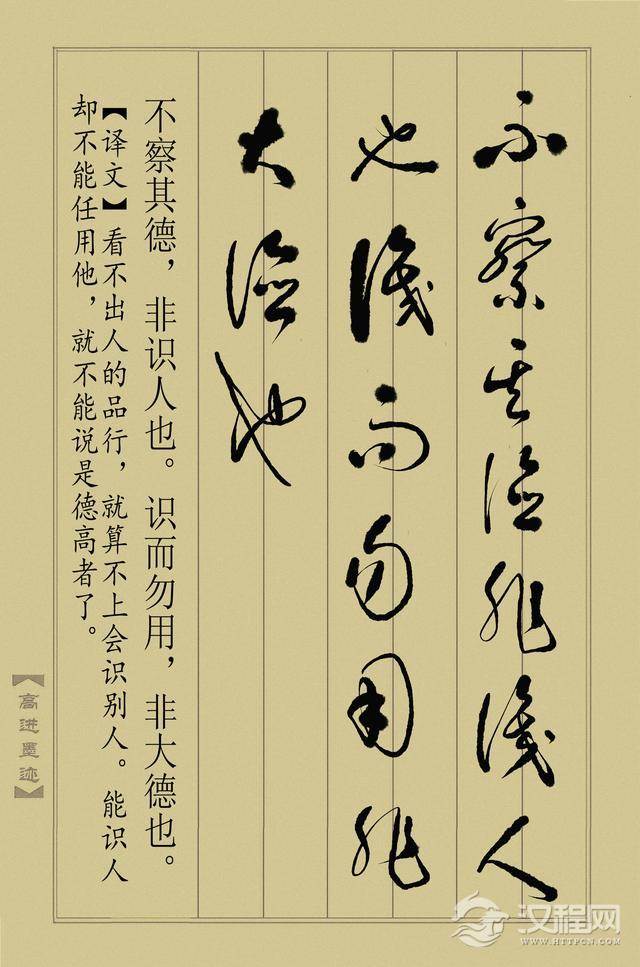 不察其德非识人
也识而勿用非
大德也
不察其德，非识人也。识而勿用，非大德也。
【译文】看不出人的品行，就算不上会识别人。能识人
却不能任用他，就不能说是德高者了。
【高进墨迹】
汉程网
WWW.HTTPCN.COM